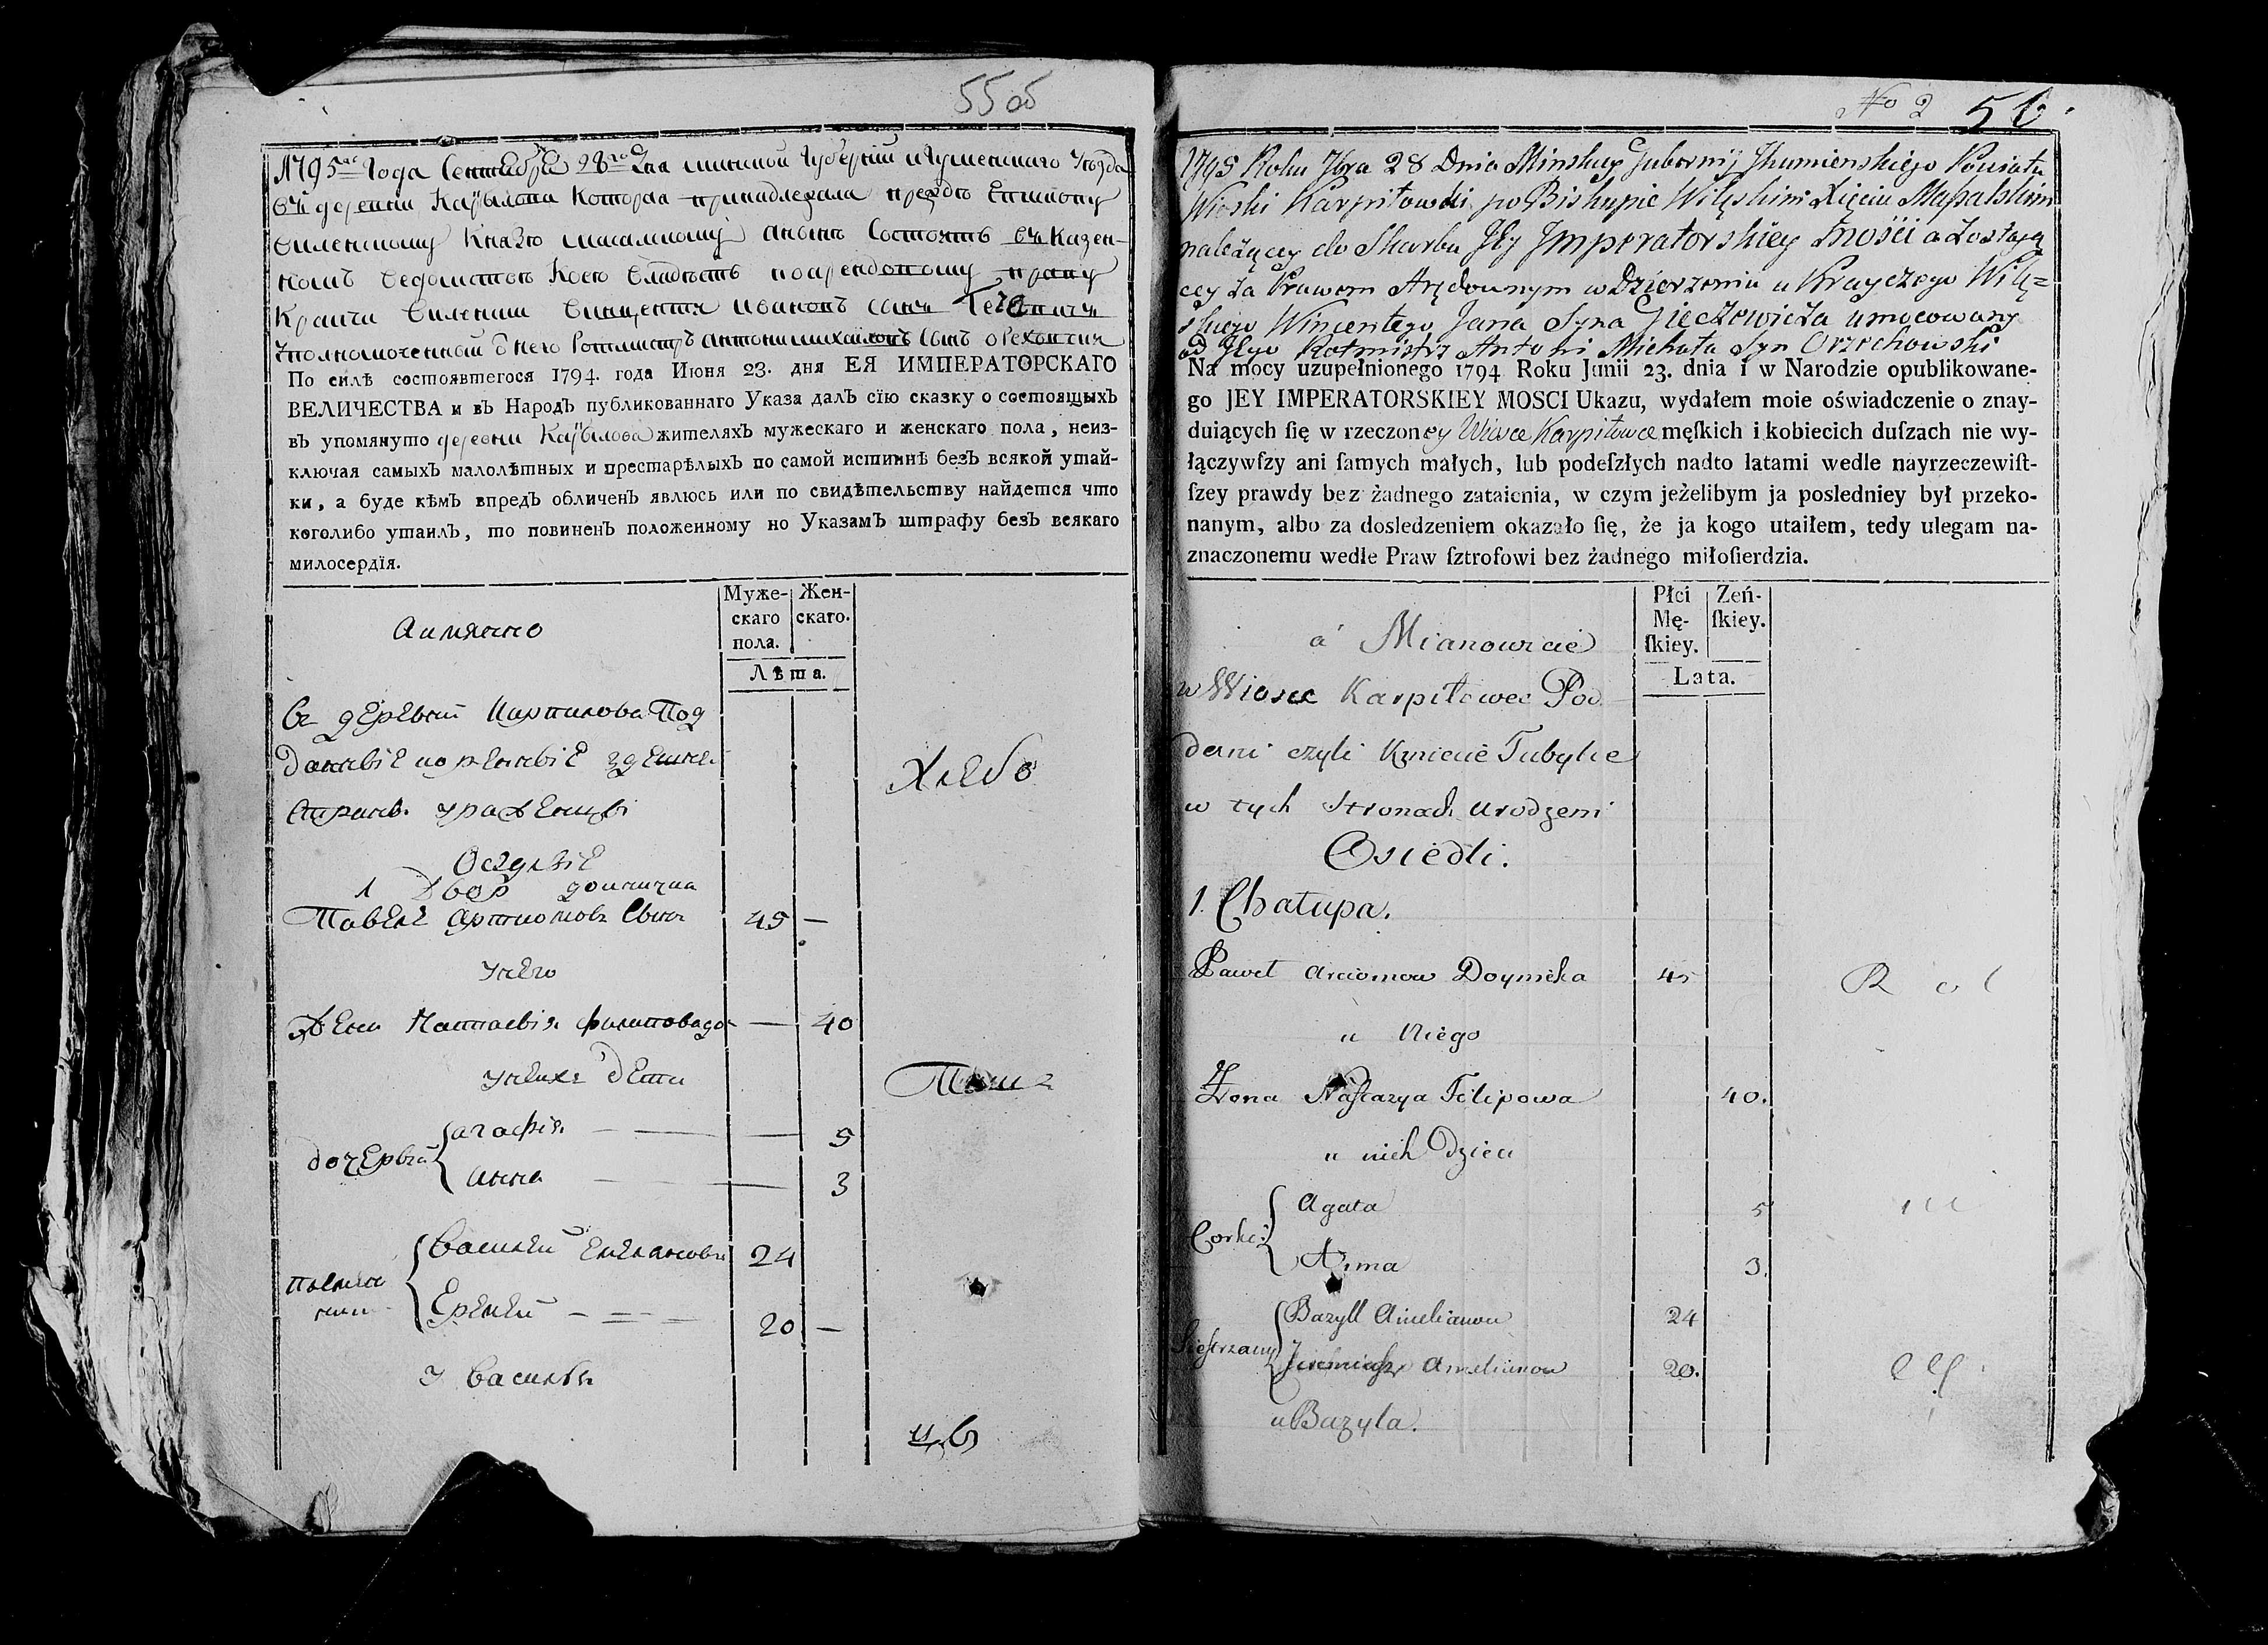 55 об
1795го года Сентебре 28го дня минской губернии игуменского уезда
въ деревни Карпилова Которая принадлежала прежде Епископу
виленскому Князю масалскому аныне Состоитъ въ Казен-
номъ ведомстве Коею владеетъ поарендовному праву
Крайчи виленски винцентия ивановъ сынъ
уполномоченный от него Ротмистръ антони михайловъ Сынъ ореховски
По силѣ состоявшегося 1794. года Июня 23. дня ЕЯ ИМПЕРАТОРСКАГО
ВЕЛИЧЕСТВА и въ Народъ публикованнаго Указа далъ сію сказку о состоящыхъ
въ упомянуто деревни Карпилова жителяхъ мужескаго и женскаго пола, неиз-
ключая самыхъ малолѣтных и престарѣлыхъ по самой истиннѣ безъ всякой утай-
ки, а буде кѣмъ впредъ обличенъ явлюсь или по свидѣтельству найдется что
коголибо утаилъ, то повиненъ положенному по Указамъ штрафу безъ всякаго
милосердїя.
Муже- Жен-
скаго скаго.
пола.
Лѣта.
Аимянно
въ деревни Карпилова Под
данные коренные здешне
стране урожденцы
Оседлые
1 Двор доиничка
Павелъ артиомовъ Сынъ 45 —
унего
Жена Настасия филипова до — 40
унихъ дети
дочерьи { агафия — 5
анна — 3
племен
ники { василей емельяновъ 24
Еремей — 20 —
у василья
Хлебо
No 2 56.
1795 Roku 7bra 28 Dnia Minskiey Gubernij Jhumienskiego Powiatu
Wioski Karpitowki po Biskupie Wilęskim Xięciu Massalskim
należącey do Skarbu Jey Jmperatorskiey Mości a zostają
cey za Prawem Arędownym w Dzierzeniu u Krayczego Wilę=
skiego Wincentego Jana Syna Gieczewicza umocowany
od Jego Rotmistrz Antoni Michała Syn Orzechowski
Na mocy uzupełnionego 1794 Roku Junii 23. dnia i w Narodzie opublikowane-
go JEY IMPERATORSKIEY MOSCI Ukazu, wydałem moie oświadczenie o znay-
duiących ſię w rzeczoney Wiosce Karpitowce męſkich i kobiecich duſzach nie wy-
łączywſzy ani ſamych małych, lub podeſzłych nadto latami wedle nayrzeczewiſt-
ſzey prawdy bez żadnego zataienia, w czym jeżelibym ja posledniey był przeko-
nanym, albo za dosledzeniem okazało ſię, że ja kogo utaiłem, tedy ulegam na-
znaczonemu wedle Praw ſztrofowi bez żadnego miłoſierdzia.
Płci Zeń-
Mę- ſkiey.
ſkiey.
Lata.
a Mianowicie
w Wiosce Karpitowce Pod
dani czyli Kmiecie Tubylce
w tych Stronach urodzeni
Osiedli.
1. Chatupa.
Paweł Arciomow Doynicka 45
u Niego
Żona Nastazya Filipowa 40.
u nich Dzieci
Corki { Agata 5
Anna 3.
Siestrzany { Bazyll Amelianow 24
Jeremiasz Amelianow 20.
u Bazyla.